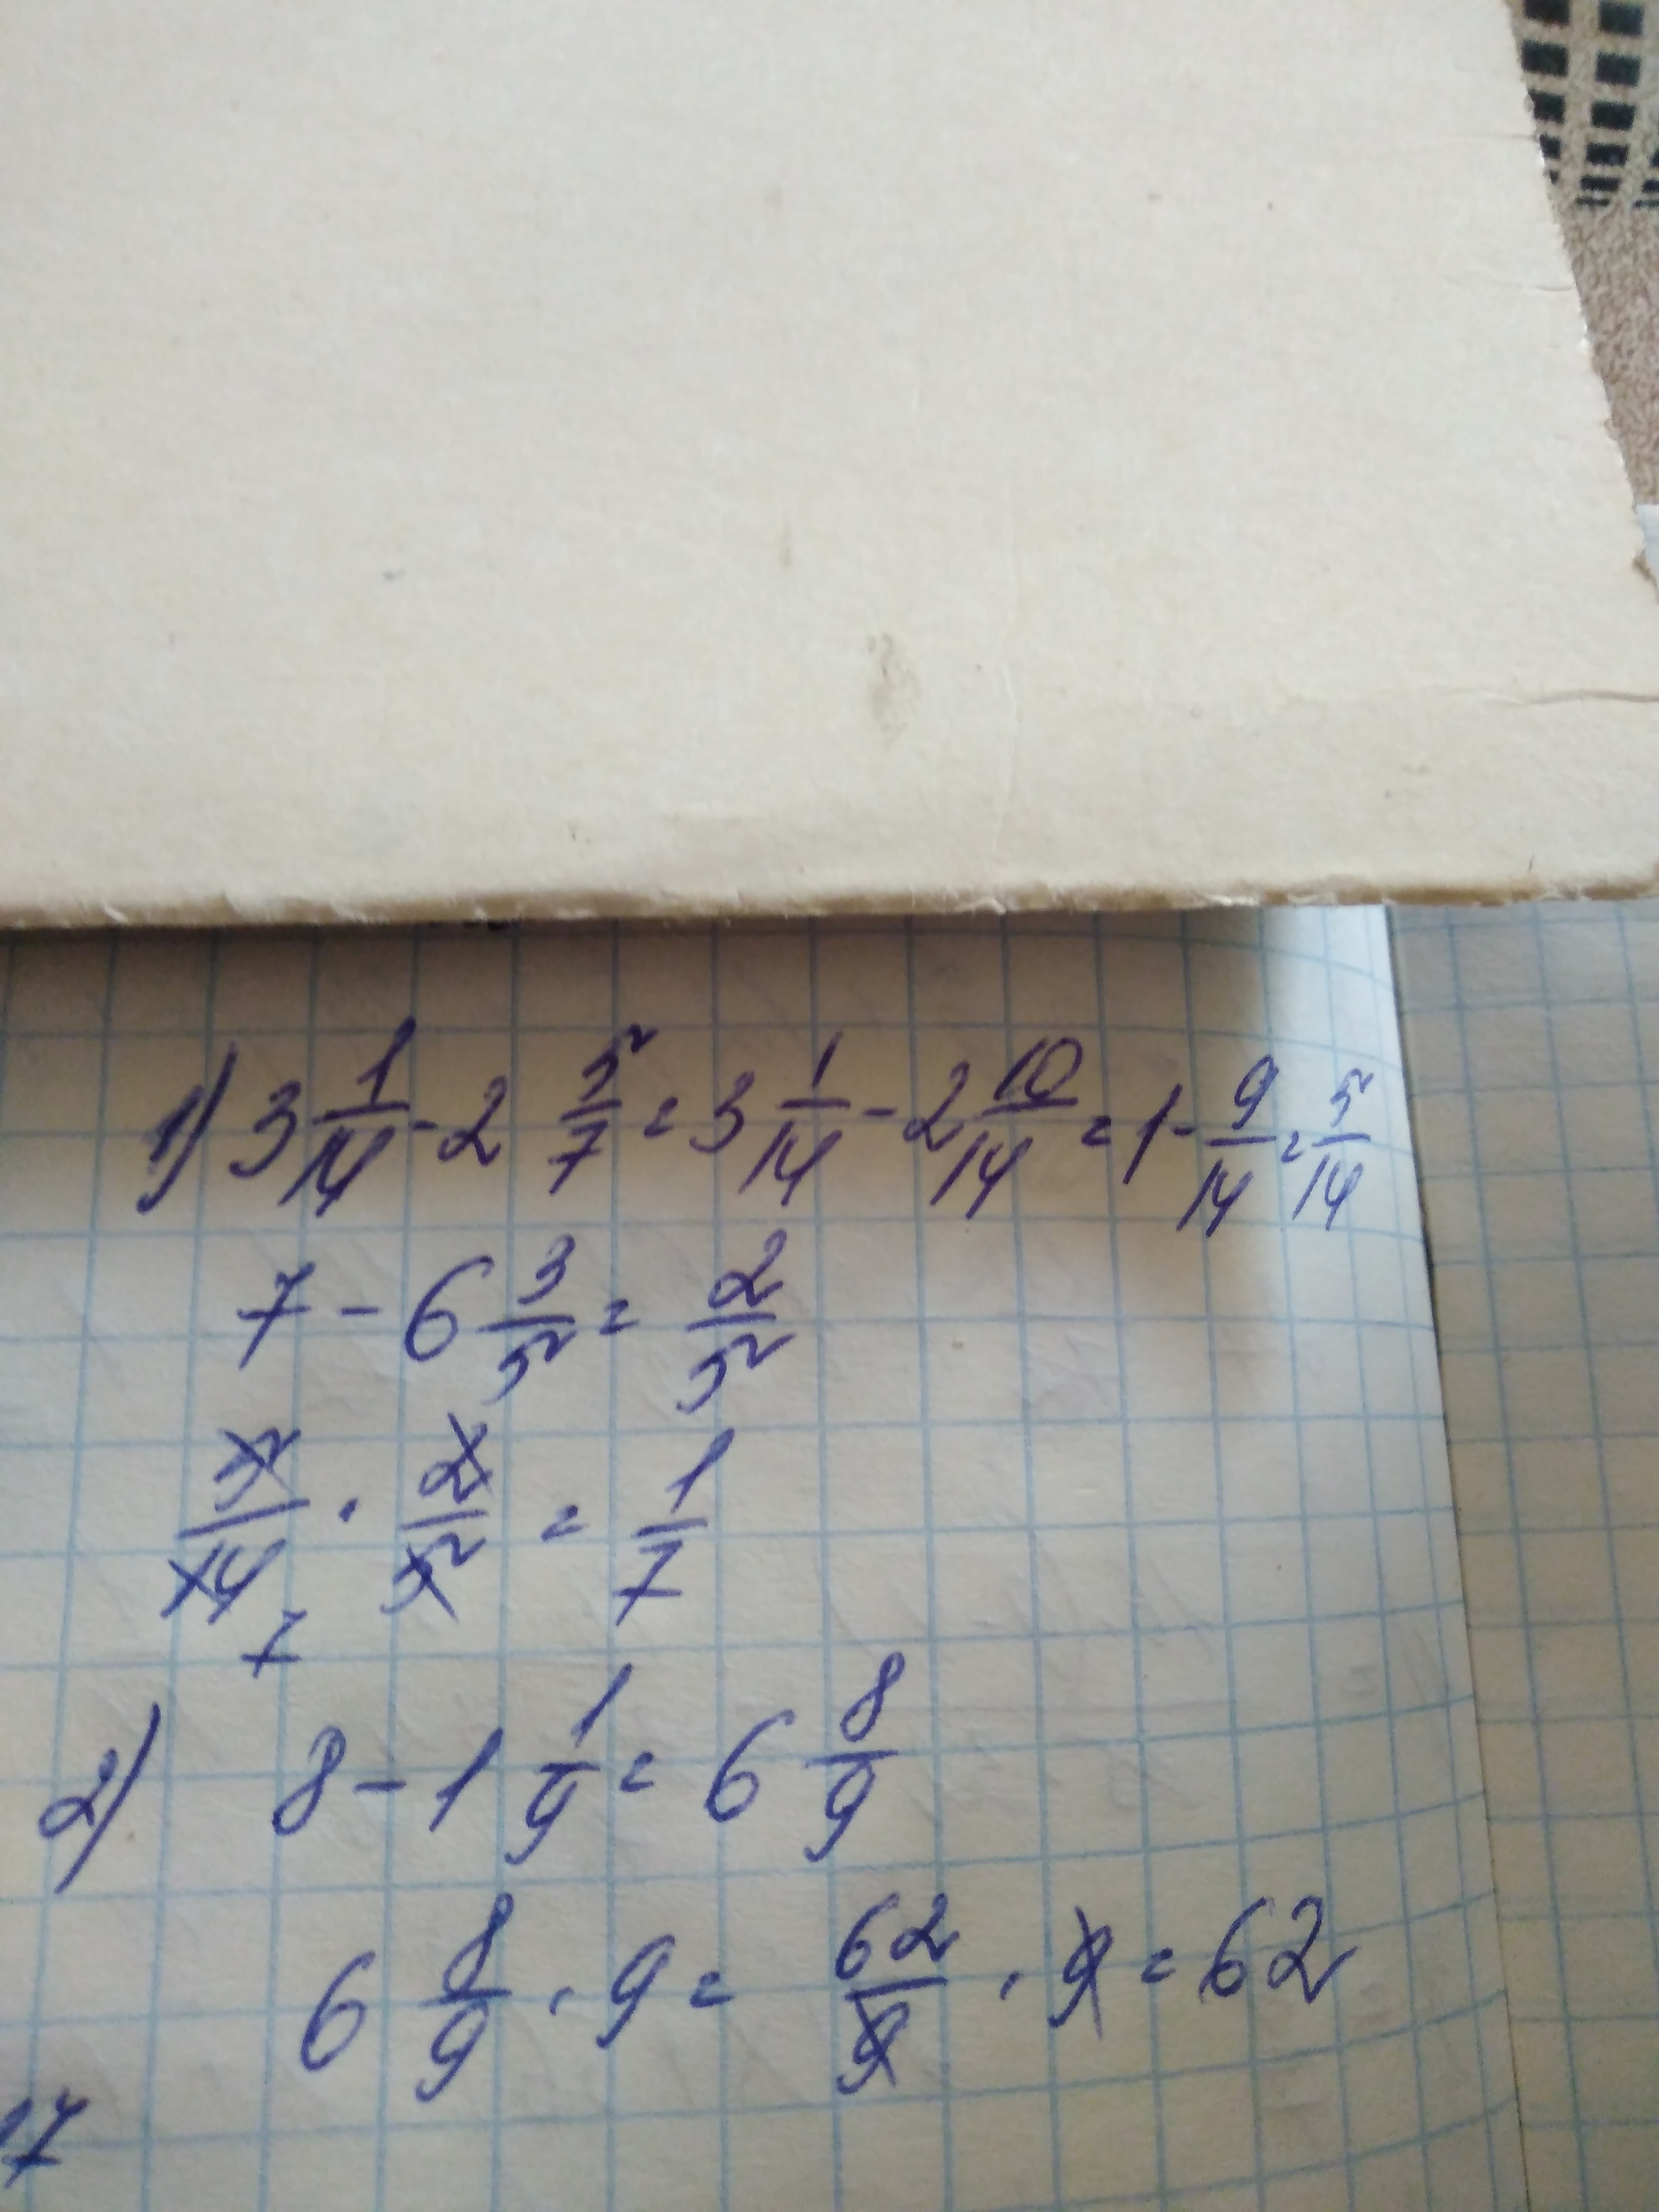 1) 3 1/14 - 2 5/7 = 3 1/14 - 2 10/14 = 1 - 9/14 = 5/14
7 - 6 3/5 = 2/5
5/14 · 2/5 = 1/7
7
2) 8 - 1 1/9 = 6 8/9
6 8/9 · 9 = 62/9 · 9 = 62
17